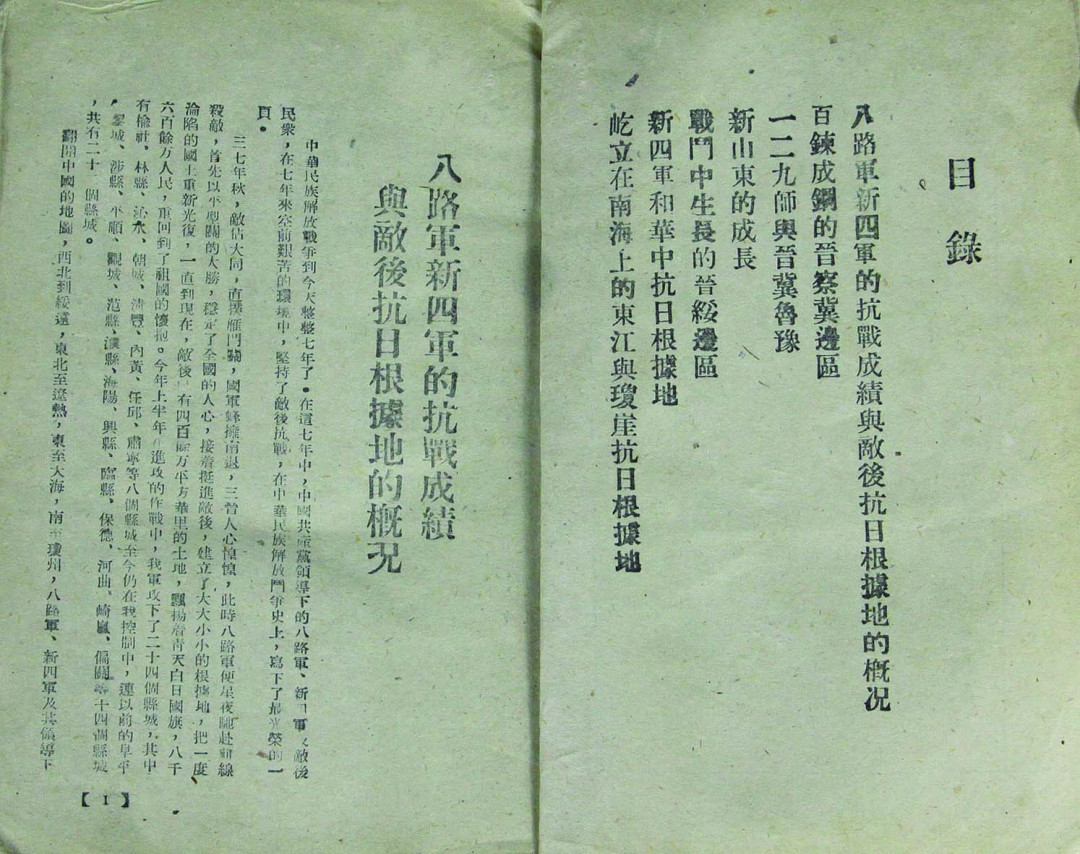 目錄
八路軍新四軍的抗戰成績與敵後抗日根據地的概况
百鍊成鋼的晉察冀邊區
一二九師與晉冀魯豫
新山東的成長
戰鬥中生長的晉綏邊區
新四軍和華中抗日根據地
屹立在南海上的東江與瓊崖抗日根據地
八路軍新四軍的抗戰成績
與敵後抗日根據地的概况
中華民族解放戰爭到今天整整七年了。在這七年中,中國共產黨領導下的八路軍、新四軍及敵後
民衆,在七年來空前艱苦的環境中,堅持了敵後抗戰,在中華民族解放鬥爭史上,寫下了最光榮的一
頁。
三七年秋,敵佔大同,直撲雁門關,國軍蜂擁南退,三晉人心惶惶,此時八路軍便星夜馳赴前線
殺敵,首先以平型關的大勝,穩定了全國的人心,接着挺進敵後,建立了大大小小的根據地,把一度
淪陷的國土重新光復,一直到現在,敵後有四百餘萬平方華里的土地,飄揚着靑天白日國旗,八千
六百餘万人民,重回到了祖國的懷抱。今年上半年進攻的作戰中,我軍攻下了二十四個縣城,其中
有榆社、林縣、沁水、朝城、淸豐、內黃、任邱、肅寧等八個縣城至今仍在我控制中,連以前的阜平
,黎城、涉縣、平順、觀城、范縣、濮縣、海陽、興縣、臨縣、保德、河曲、岢嵐、偏關等十四個縣城
,共有二十 個縣城。
翻開中國的地圖,西北到綏遠,東北至遼熱,東至大海,南至瓊州,八路軍、新四軍及其領導下
【1】